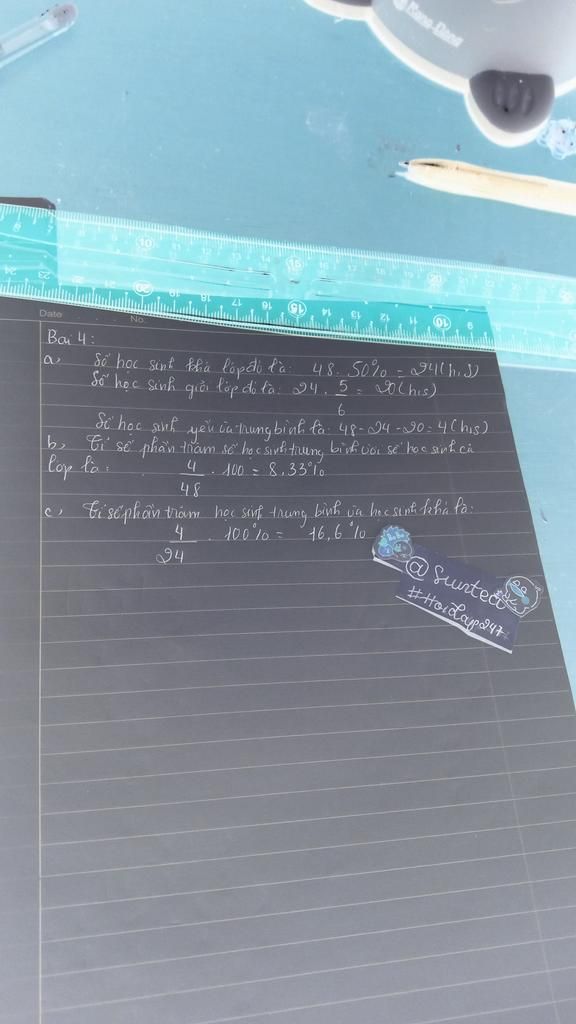 Kang Dana
Date No.
Bài 4:
a, Số học sinh khá lớp đó là: 48 . 50% = 24 (h,s)
Số học sinh giỏi lớp đó là: 24 . 5/6 = 20 (h,s)
Số học sinh yếu và trung bình là: 48 - 24 - 20 = 4 (h,s)
b, Tỉ số phần trăm số học sinh trung bình với số học sinh cả
lớp là: 4/48 . 100 = 8,33%
c, Tỉ số phần trăm học sinh trung bình và học sinh khá là:
4/24 . 100% = 16,6%
@Suntea
#Hoidap247